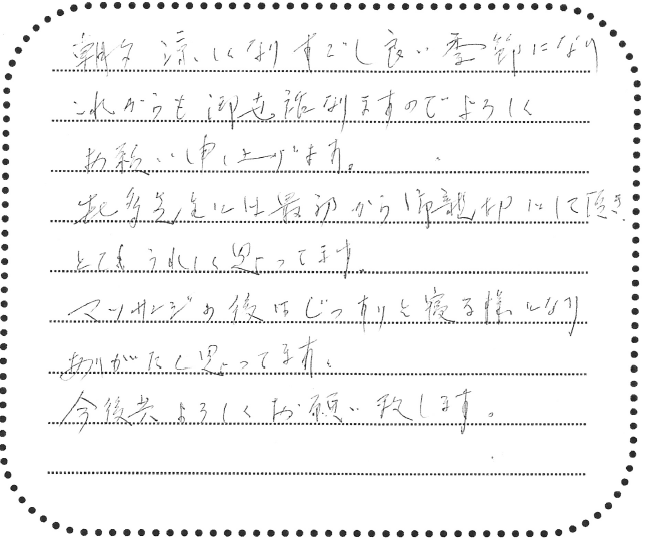 朝夕 涼しくなりすごし良い季節になり
これからも御世話なりますのでよろしく
お願い申し上げます。
先生には最初から御親切にして頂き
とてもうれしく思ってます。
マッサージの後はじっすりと寝る様になり
ありがたく思ってます。
今後共よろしくお願い致します。